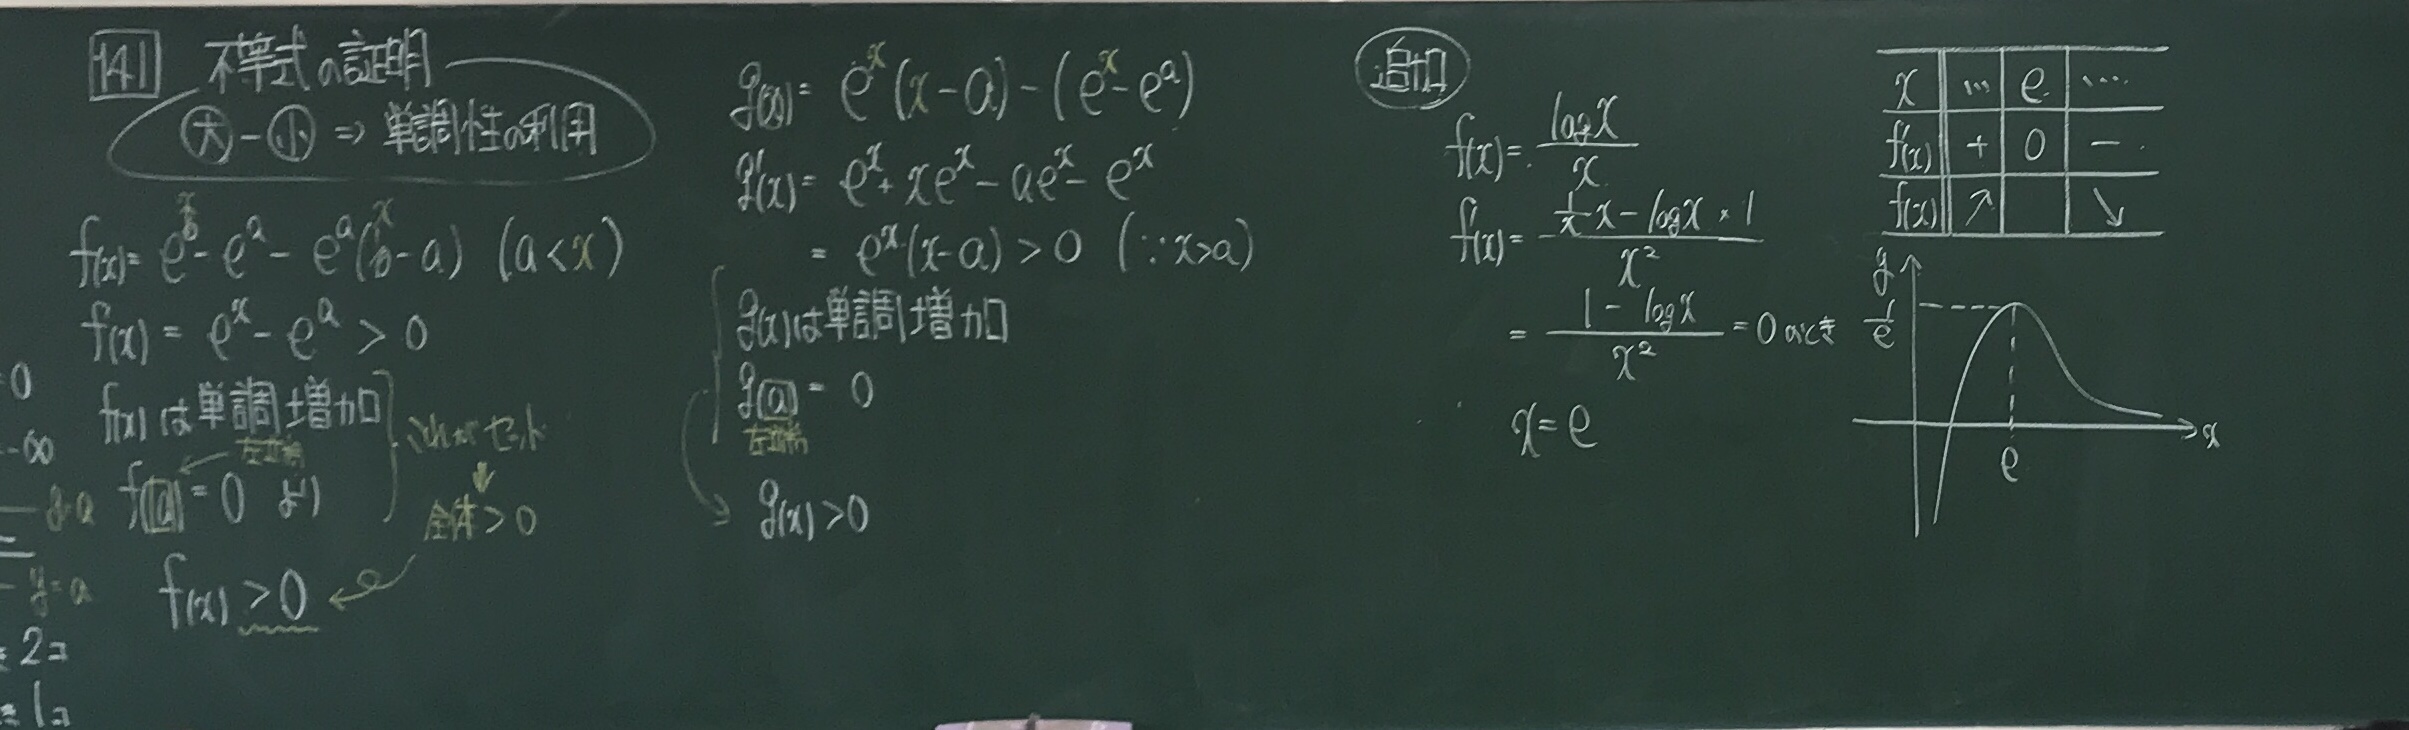 141 不等式の証明
大 - 小 ⇒ 単調性の利用
f(x) = e^x - e^a - e^a(x - a) (a < x)
f'(x) = e^x - e^a > 0
f(x)は単調増加
左端
f(a) = 0 より
これがセット
全体 > 0
f(x) > 0
= 0
-∞
y=a
y=a
2コ
1コ
g(x) = e^x(x - a) - (e^x - e^a)
g'(x) = e^x + xe^x - ae^x - e^x
= e^x(x - a) > 0 (∵ x > a)
g(x)は単調増加
g(a) = 0
左端
g(x) > 0
追加
f(x) = log x / x
f'(x) = (1/x · x - log x × 1) / x^2
= (1 - log x) / x^2 = 0 のとき
x = e
x … e …
f'(x) + 0 -
f(x) ↗ ↘
y
1/e
x
e